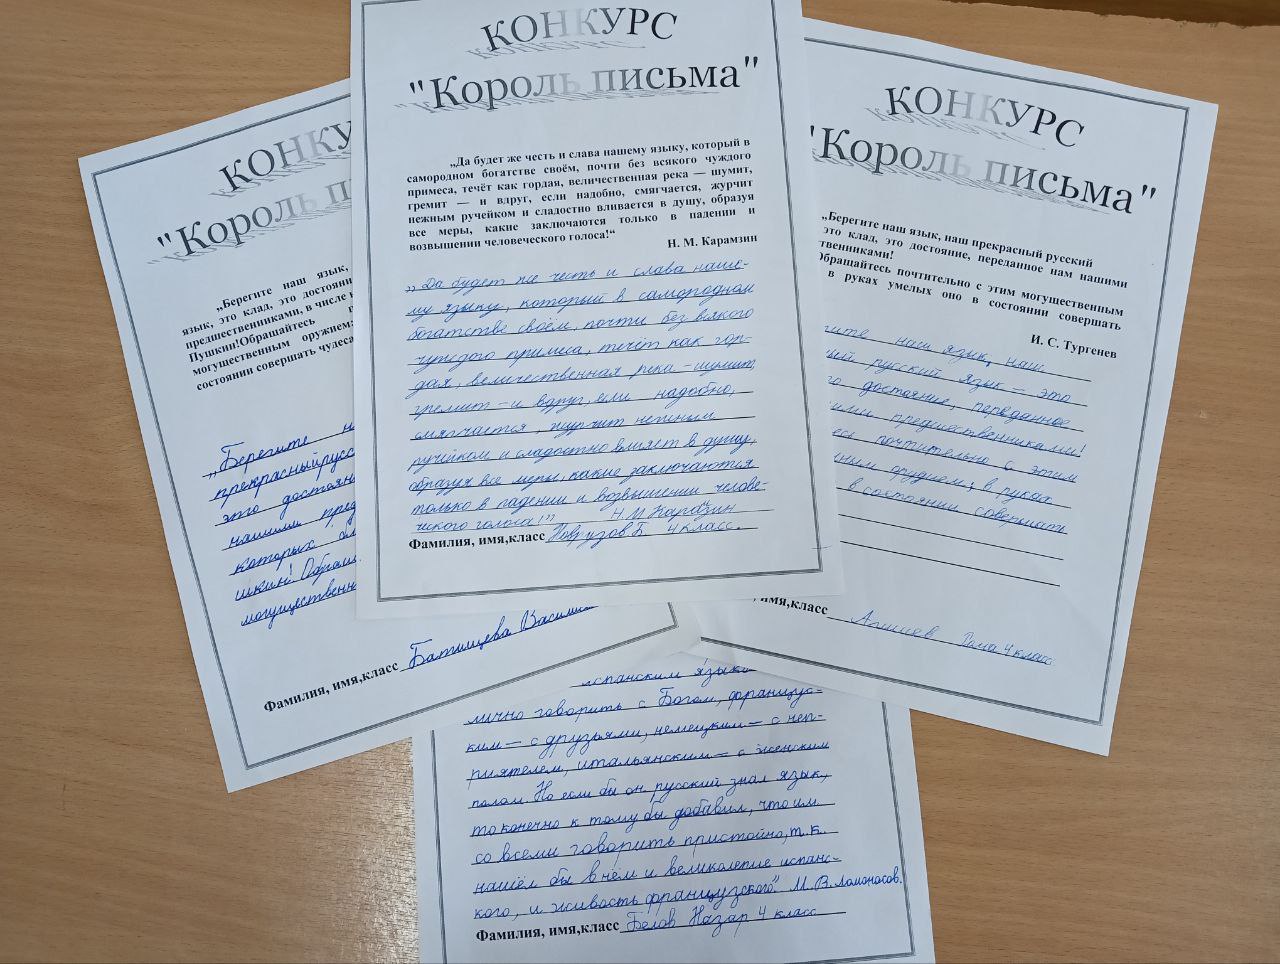 КОНКУРС
"Король письма"
„Да будет же честь и слава нашему языку, который в
самородном богатстве своём, почти без всякого чуждого
примеса, течёт как гордая, величественная река — шумит,
гремит — и вдруг, если надобно, смягчается, журчит
нежным ручейком и сладостно вливается в душу, образуя
все меры, какие заключаются только в падении и
возвышении человеческого голоса!“
Н. М. Карамзин
„Да будет же честь и слава наше-
му языку, который в самородном
богатстве своём, почти без всякого
чуждого примеса, течёт как гор-
дая, величественная река - шумит,
гремит - и вдруг, если надобно,
смягчается, журчит нежным
ручейком и сладостно влияет в душу,
образуя все меры, какие заключаются
только в падении и возвышении челове-
ческого голоса!”
Н.М Карамзин
Фамилия, имя,класс Новрузов Б. 4 класс.
КОНКУ
"Король п
„Берегите наш язык,
язык, это клад, это достоя
предшественниками, в числе к
Пушкин!Обращайтесь
могущественным оружием
состоянии совершать чудеса
„Берегите н
прекрасныйрусс
это достоян
нашими пред
которых бл
шкин! Обращ
могущественн
Фамилия, имя,класс Батищева Васили
КОНКУРС
"Король письма"
„Берегите наш язык, наш прекрасный русский
это клад, это достояние, переданное нам нашими
ственниками!
Обращайтесь почтительно с этим могущественным
в руках умелых оно в состоянии совершать
И. С. Тургенев
гите наш язык, наш
ый русский язык - это
достояние, переданное
ими предшественниками!
есь почтительно с этим
ным орудием; в руках
в состоянии совершать
имя,класс Агишев Рома 4 класс
испанским языко
лично говорить с Богом, француз-
ким — с друзьями, немецким — с неп-
риятелем, итальянским — с женским
полом. Но если бы он русский знал язык,
то конечно к тому бы добавил, что им
со всеми говорить пристойно, т.к.
нашёл бы в нём и великолепие испанс-
кого, и живость французского". М. В. Ломоносов.
Фамилия, имя,класс Белов Назар 4 класс